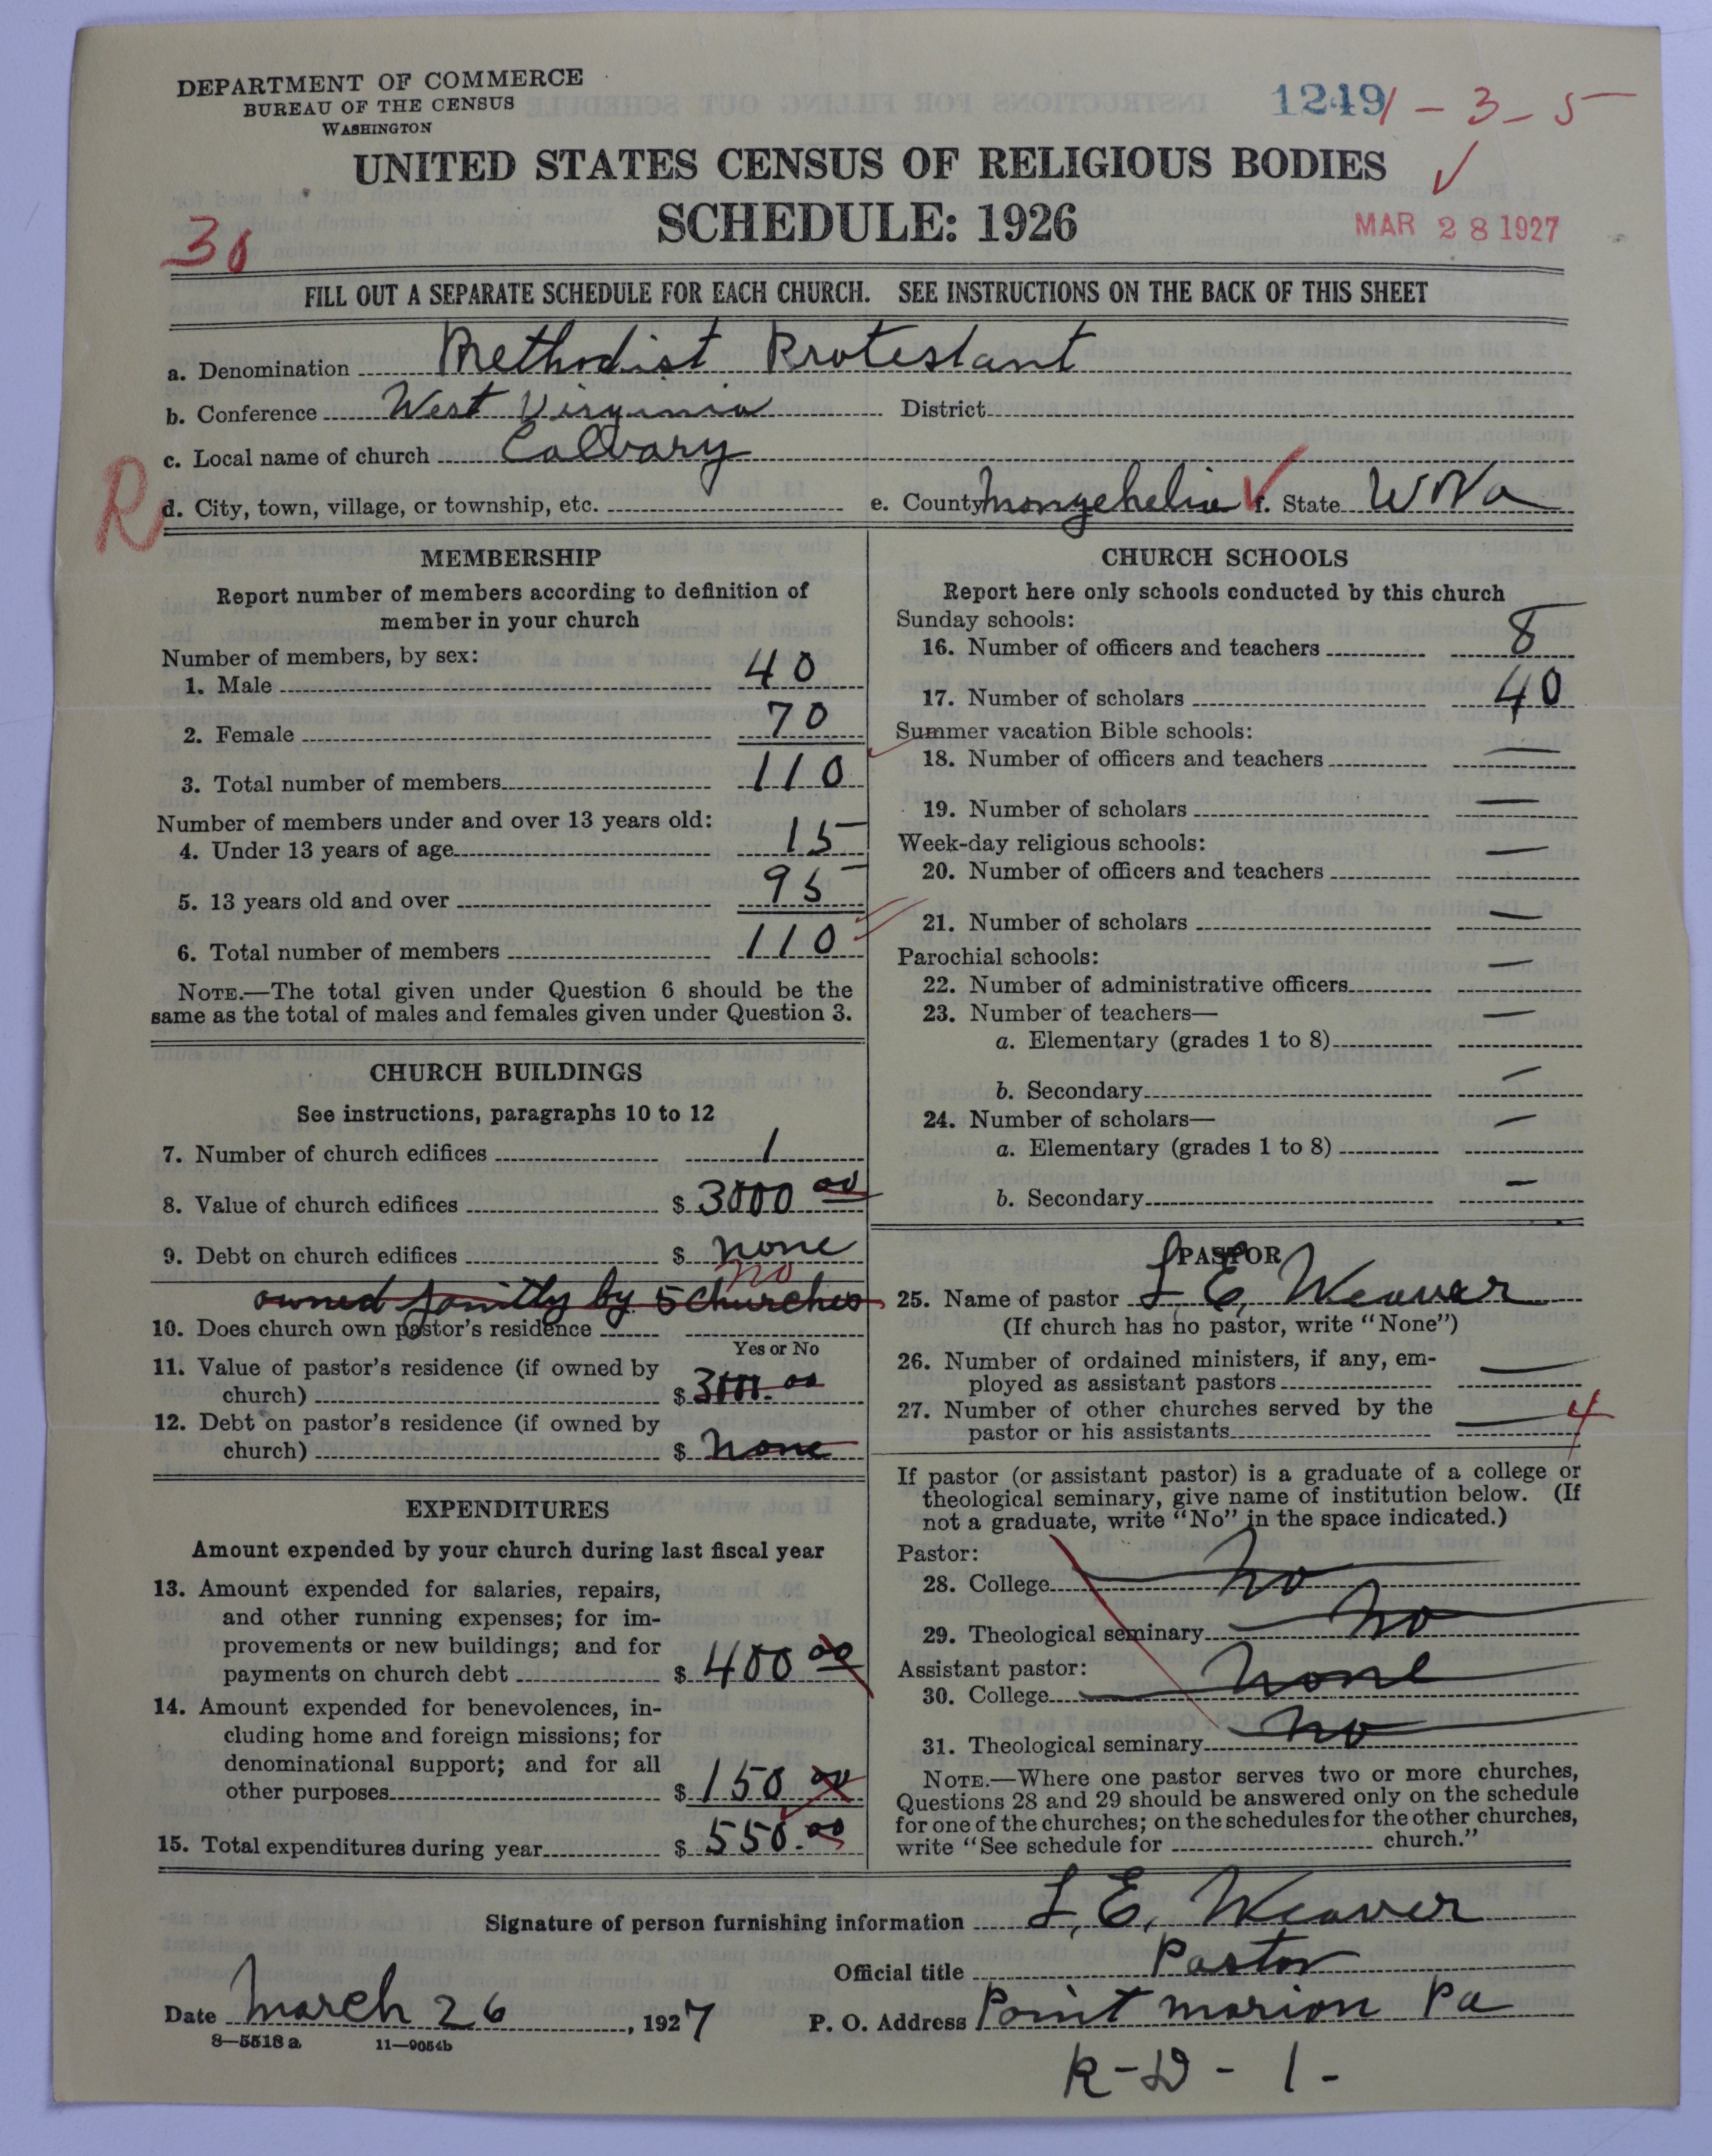 DEPARTMENT OF COMMERCE
BUREAU OF THE CENSUS
WASHINGTON
1249 1-3-5
UNITED STATES CENSUS OF RELIGIOUS BODIES
SCHEDULE: 1926
MAR 28 1927
30
FILL OUT A SEPARATE SCHEDULE FOR EACH CHURCH. SEE INSTRUCTIONS ON THE BACK OF THIS SHEET
a. Denomination Methodist Protestant
b. Conference West Virginia District
c. Local name of church Calvary
R
d. City, town, village, or township, etc. e. County Mongehelia f. State W Va
MEMBERSHIP
Report number of members according to definition of
member in your church
Number of members, by sex:
1. Male 40
2. Female 70
3. Total number of members 110
Number of members under and over 13 years old:
4. Under 13 years of age 15
5. 13 years old and over 95
6. Total number of members 110
NOTE.—The total given under Question 6 should be the
same as the total of males and females given under Question 3.
CHURCH BUILDINGS
See instructions, paragraphs 10 to 12
7. Number of church edifices 1
8. Value of church edifices $ 3000 00
9. Debt on church edifices $ none
no
owned jointly by 5 churches
10. Does church own pastor's residence
Yes or No
11. Value of pastor's residence (if owned by
church) $ 3000.00
12. Debt on pastor's residence (if owned by
church) $ none
EXPENDITURES
Amount expended by your church during last fiscal year
13. Amount expended for salaries, repairs,
and other running expenses; for im-
provements or new buildings; and for
payments on church debt $ 400 00
14. Amount expended for benevolences, in-
cluding home and foreign missions; for
denominational support; and for all
other purposes $ 150 00
15. Total expenditures during year $ 550.00
CHURCH SCHOOLS
Report here only schools conducted by this church
Sunday schools:
16. Number of officers and teachers 8
17. Number of scholars 40
Summer vacation Bible schools:
18. Number of officers and teachers —
19. Number of scholars —
Week-day religious schools:
20. Number of officers and teachers —
21. Number of scholars —
Parochial schools:
22. Number of administrative officers —
23. Number of teachers—
a. Elementary (grades 1 to 8) —
b. Secondary —
24. Number of scholars—
a. Elementary (grades 1 to 8) —
b. Secondary —
PASTOR
25. Name of pastor L. E. Weaver
(If church has no pastor, write "None")
26. Number of ordained ministers, if any, em-
ployed as assistant pastors —
27. Number of other churches served by the
pastor or his assistants — 4
If pastor (or assistant pastor) is a graduate of a college or
theological seminary, give name of institution below. (If
not a graduate, write "No" in the space indicated.)
Pastor:
28. College no
29. Theological seminary no
Assistant pastor:
30. College none
31. Theological seminary no
NOTE.—Where one pastor serves two or more churches,
Questions 28 and 29 should be answered only on the schedule
for one of the churches; on the schedules for the other churches,
write "See schedule for church."
Signature of person furnishing information L. E. Weaver
Official title Pastor
Date March 26, 1927 P. O. Address Point Marion Pa
8—5518 a 11—9054b
R-D-1-